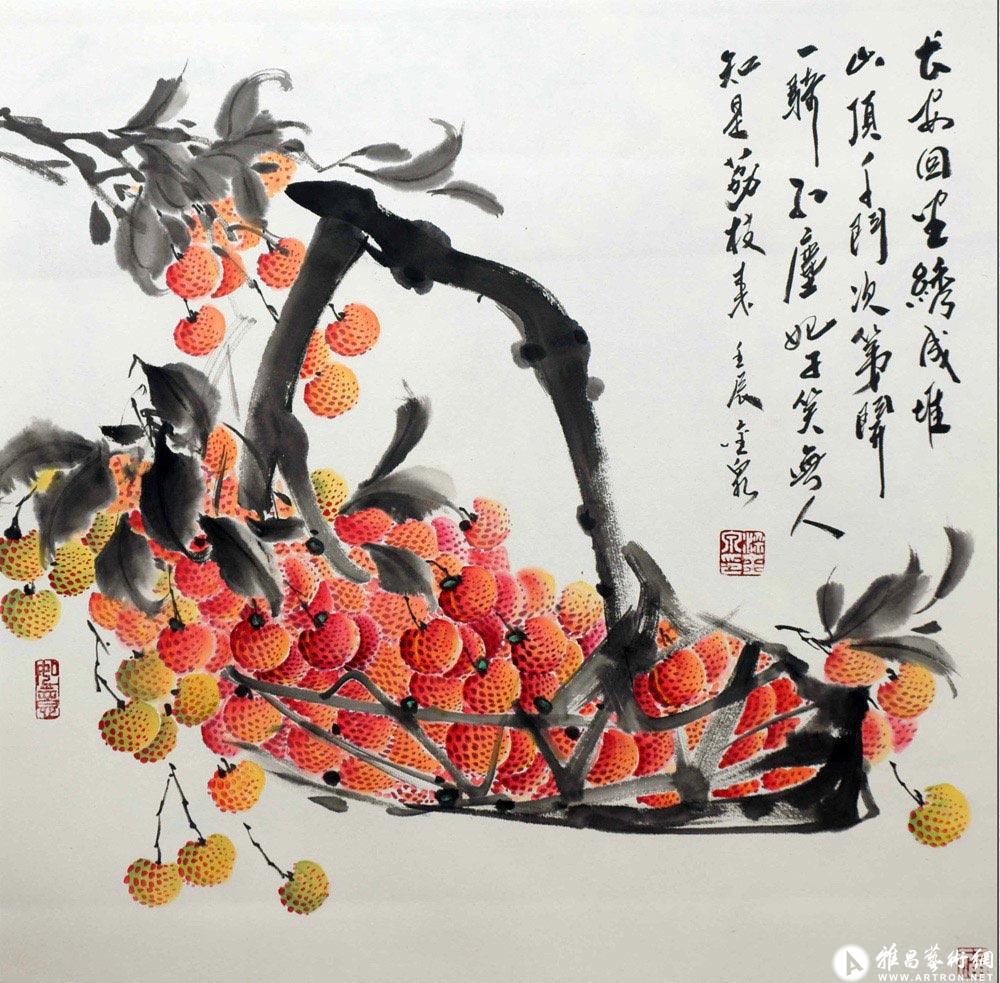 长安回望绣成堆
山頂千門次第開
一騎红塵妃子笑無人
知是荔枝来 壬辰金泉
雅昌藝術網
WWW.ARTRON.NET